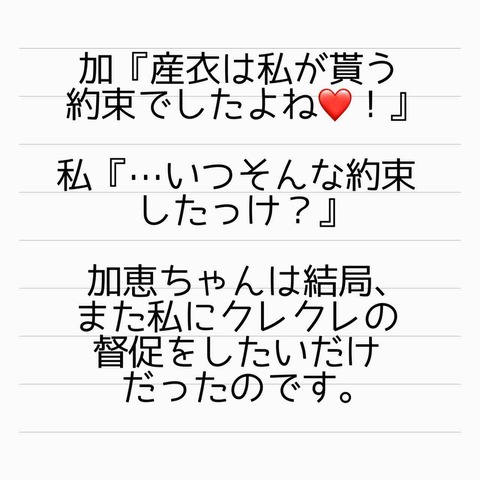 加『産衣は私が貰う
約束でしたよね❤️！』
私『…いつそんな約束
したっけ？』
加恵ちゃんは結局、
また私にクレクレの
督促をしたいだけ
だったのです。